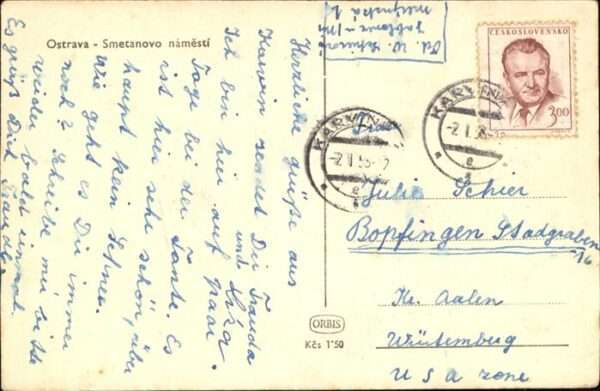 Ostrava - Smetanovo náměstí
Herzliche Grüße aus
Karwin sendet Dir Trauda
und
Ich bin hier auf paar
Tage bei der Tante. Es
ist hier sehr schön, über
haupt kein Schnee.
Wie geht es Dir immer
noch? Schreibe mir bitte
wieder bald einmal.
Es grüßt Dich Trauda.
Od. W.
Jablonec n/N
ČESKOSLOVENSKO
2,00
KARVINÁ
-2.I.5
e
KARVINÁ
-2.I.55-
e
Frau
Julie Schier
Bopfingen Stadgraben
16
Kr. Aalen
Würtemberg
U S A zone
ORBIS
Kčs 1·50